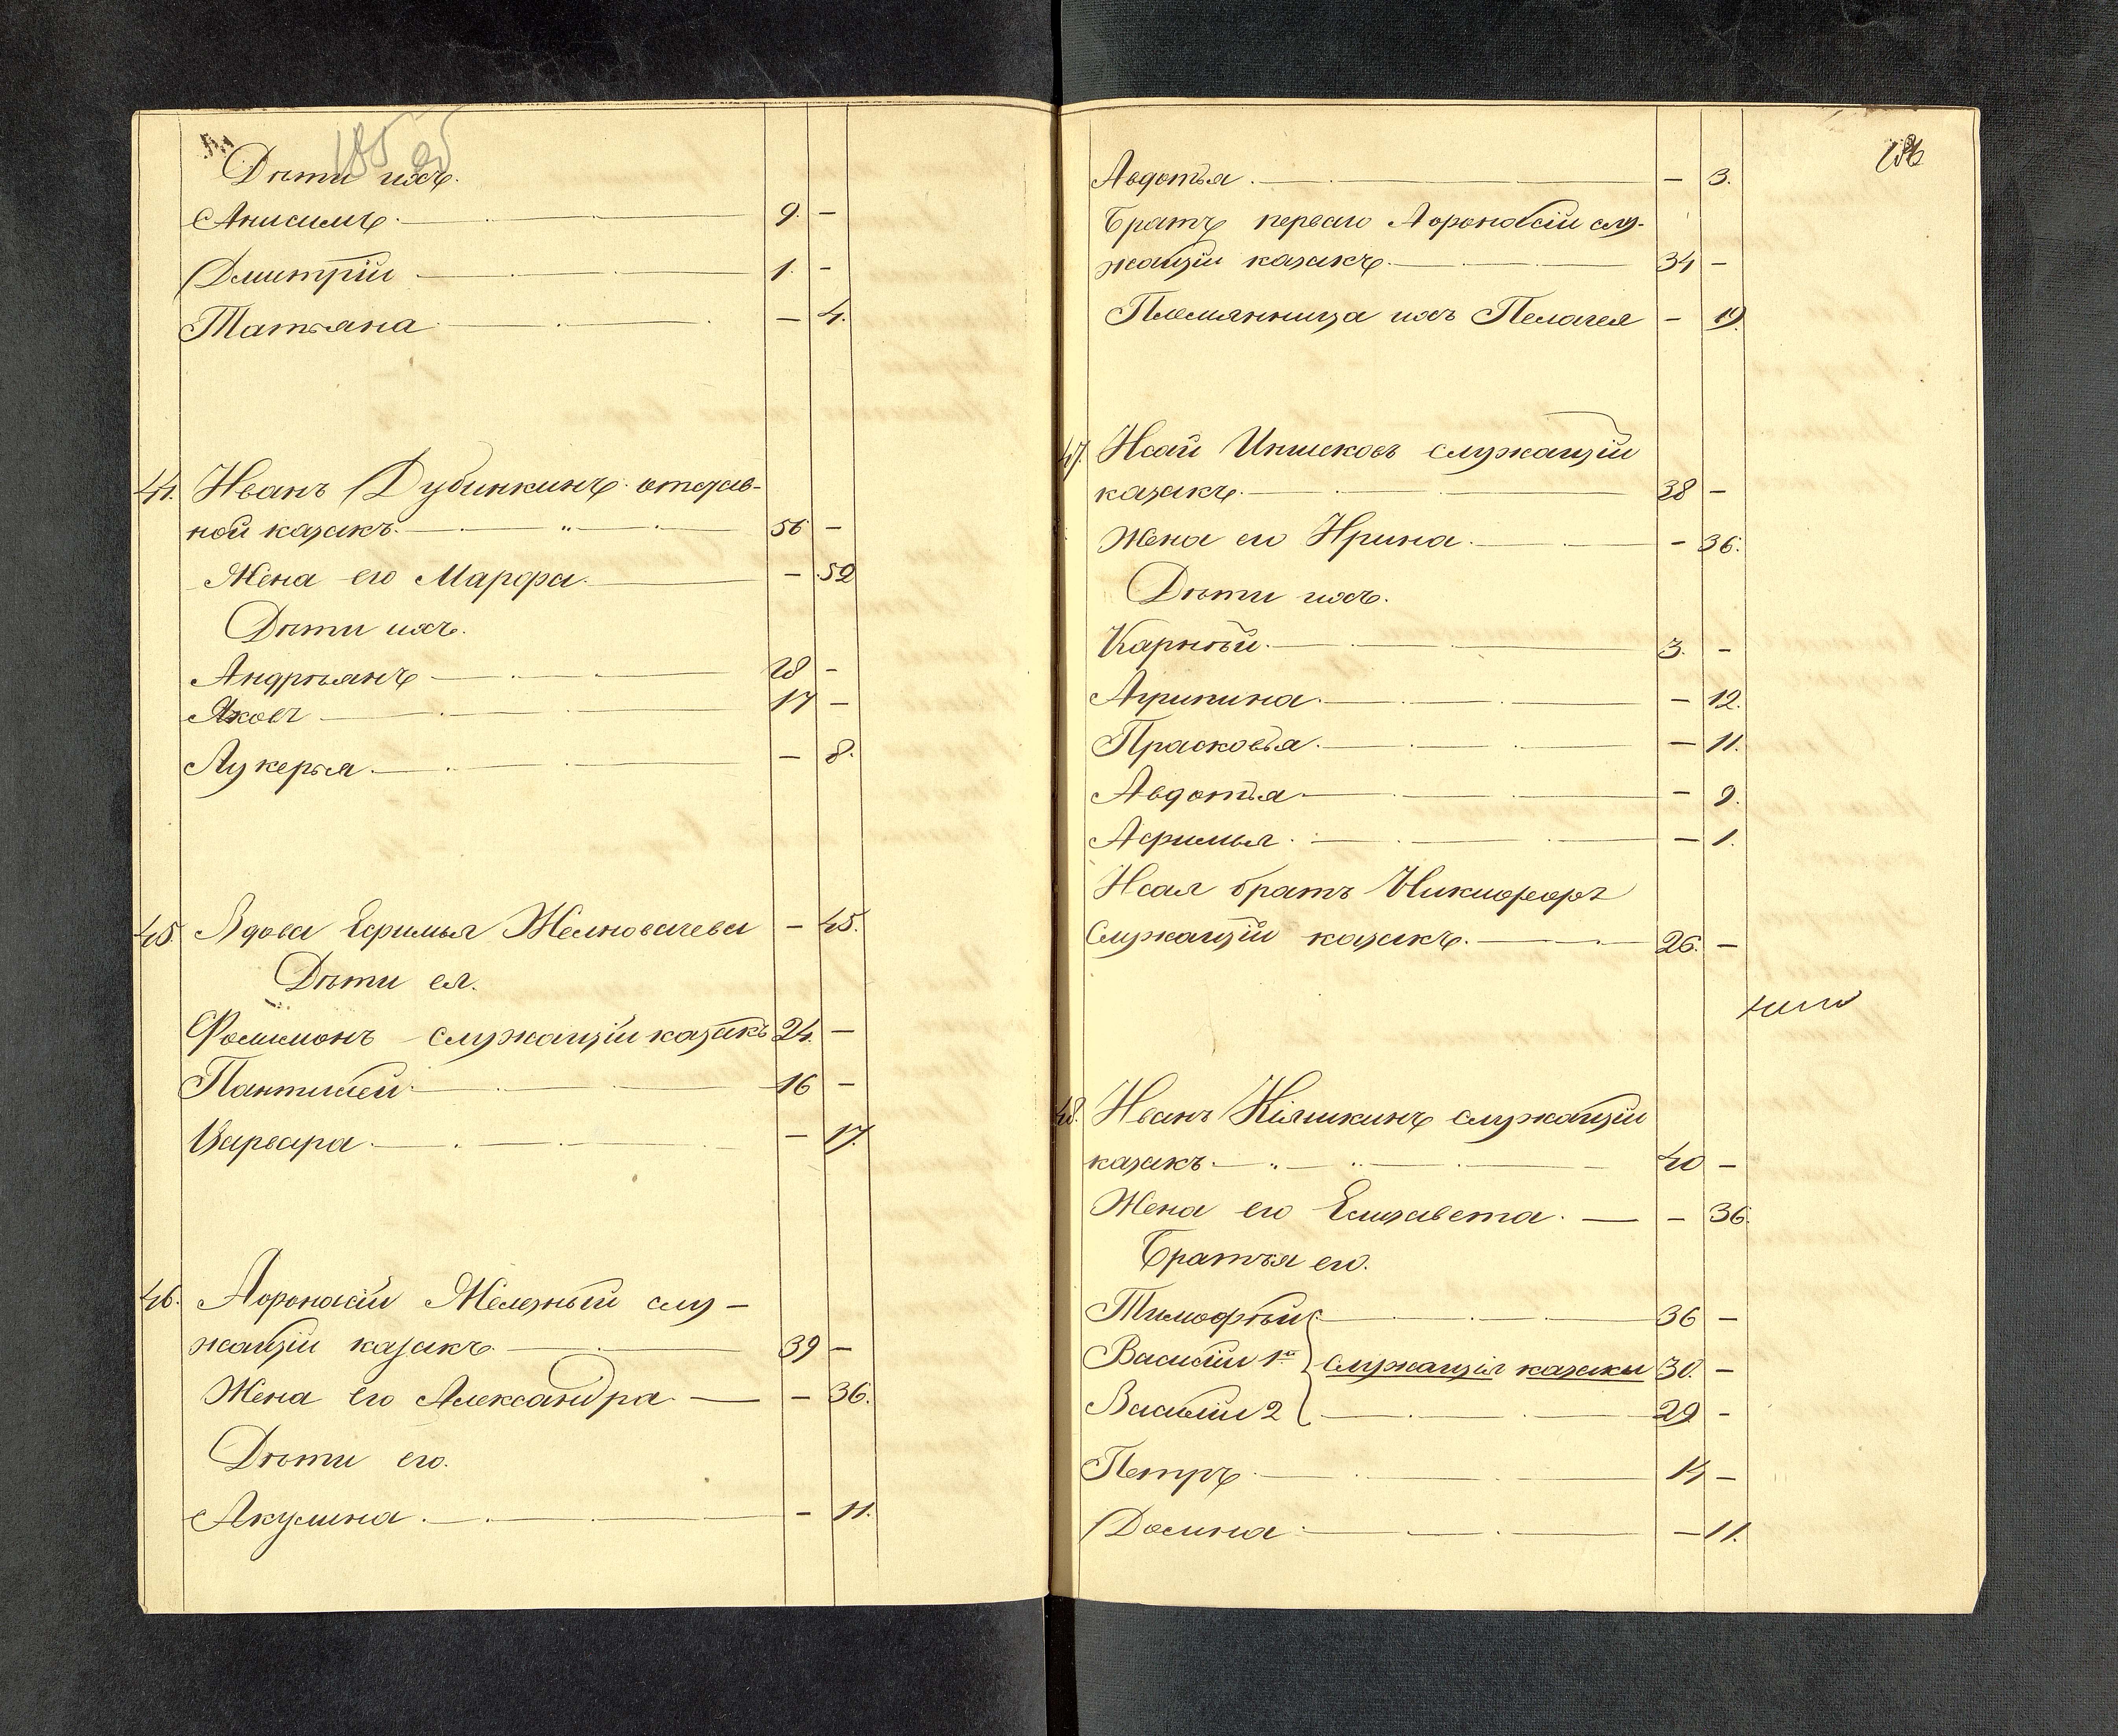 Дѣти ихъ.
Анисимъ. 9. –
Дмитрій 1. –
Татьяна – 4.
44. Иванъ Дубинкинъ отстав-
ной казакъ. 56 –
Жена его Марфа. – 52
Дѣти ихъ.
Андрѣянъ 28 –
Яковъ 17 –
Лукерья. – 8.
45. Вдова Ефимья – 45.
Дѣти ея.
Филимонъ служащій казакъ 24. –
Пантилей 16 –
Варвара. – 17.
46. Афонасій Железный слу-
жащій казакъ 39 –
Жена его Александра. – 36.
Дѣти его.
Акулина. – 11.
Авдотья. – 3.
Братъ перваго Афонасій слу-
жащій казакъ. 34 –
Племянница ихъ Пелагея – 19.
47. Исай служащій
казакъ. 38 –
Жена его Ирина. – 36.
Дѣти ихъ.
Карнѣй. 3. –
Агрипина. – 12.
Прасковья. – 11.
Авдотья – 9.
Афимья. – 1.
Исая братъ Никифоръ
служащій казакъ. 26. –
48. Иванъ Кіяшкинъ служащій
казакъ. 40 –
Жена его Елизавета. – 36.
Братья его.
Тимофѣй 36 –
Василій 1й служащія казаки 30. –
Василій 2 29 –
Петръ. 14 –
Домна – 11.